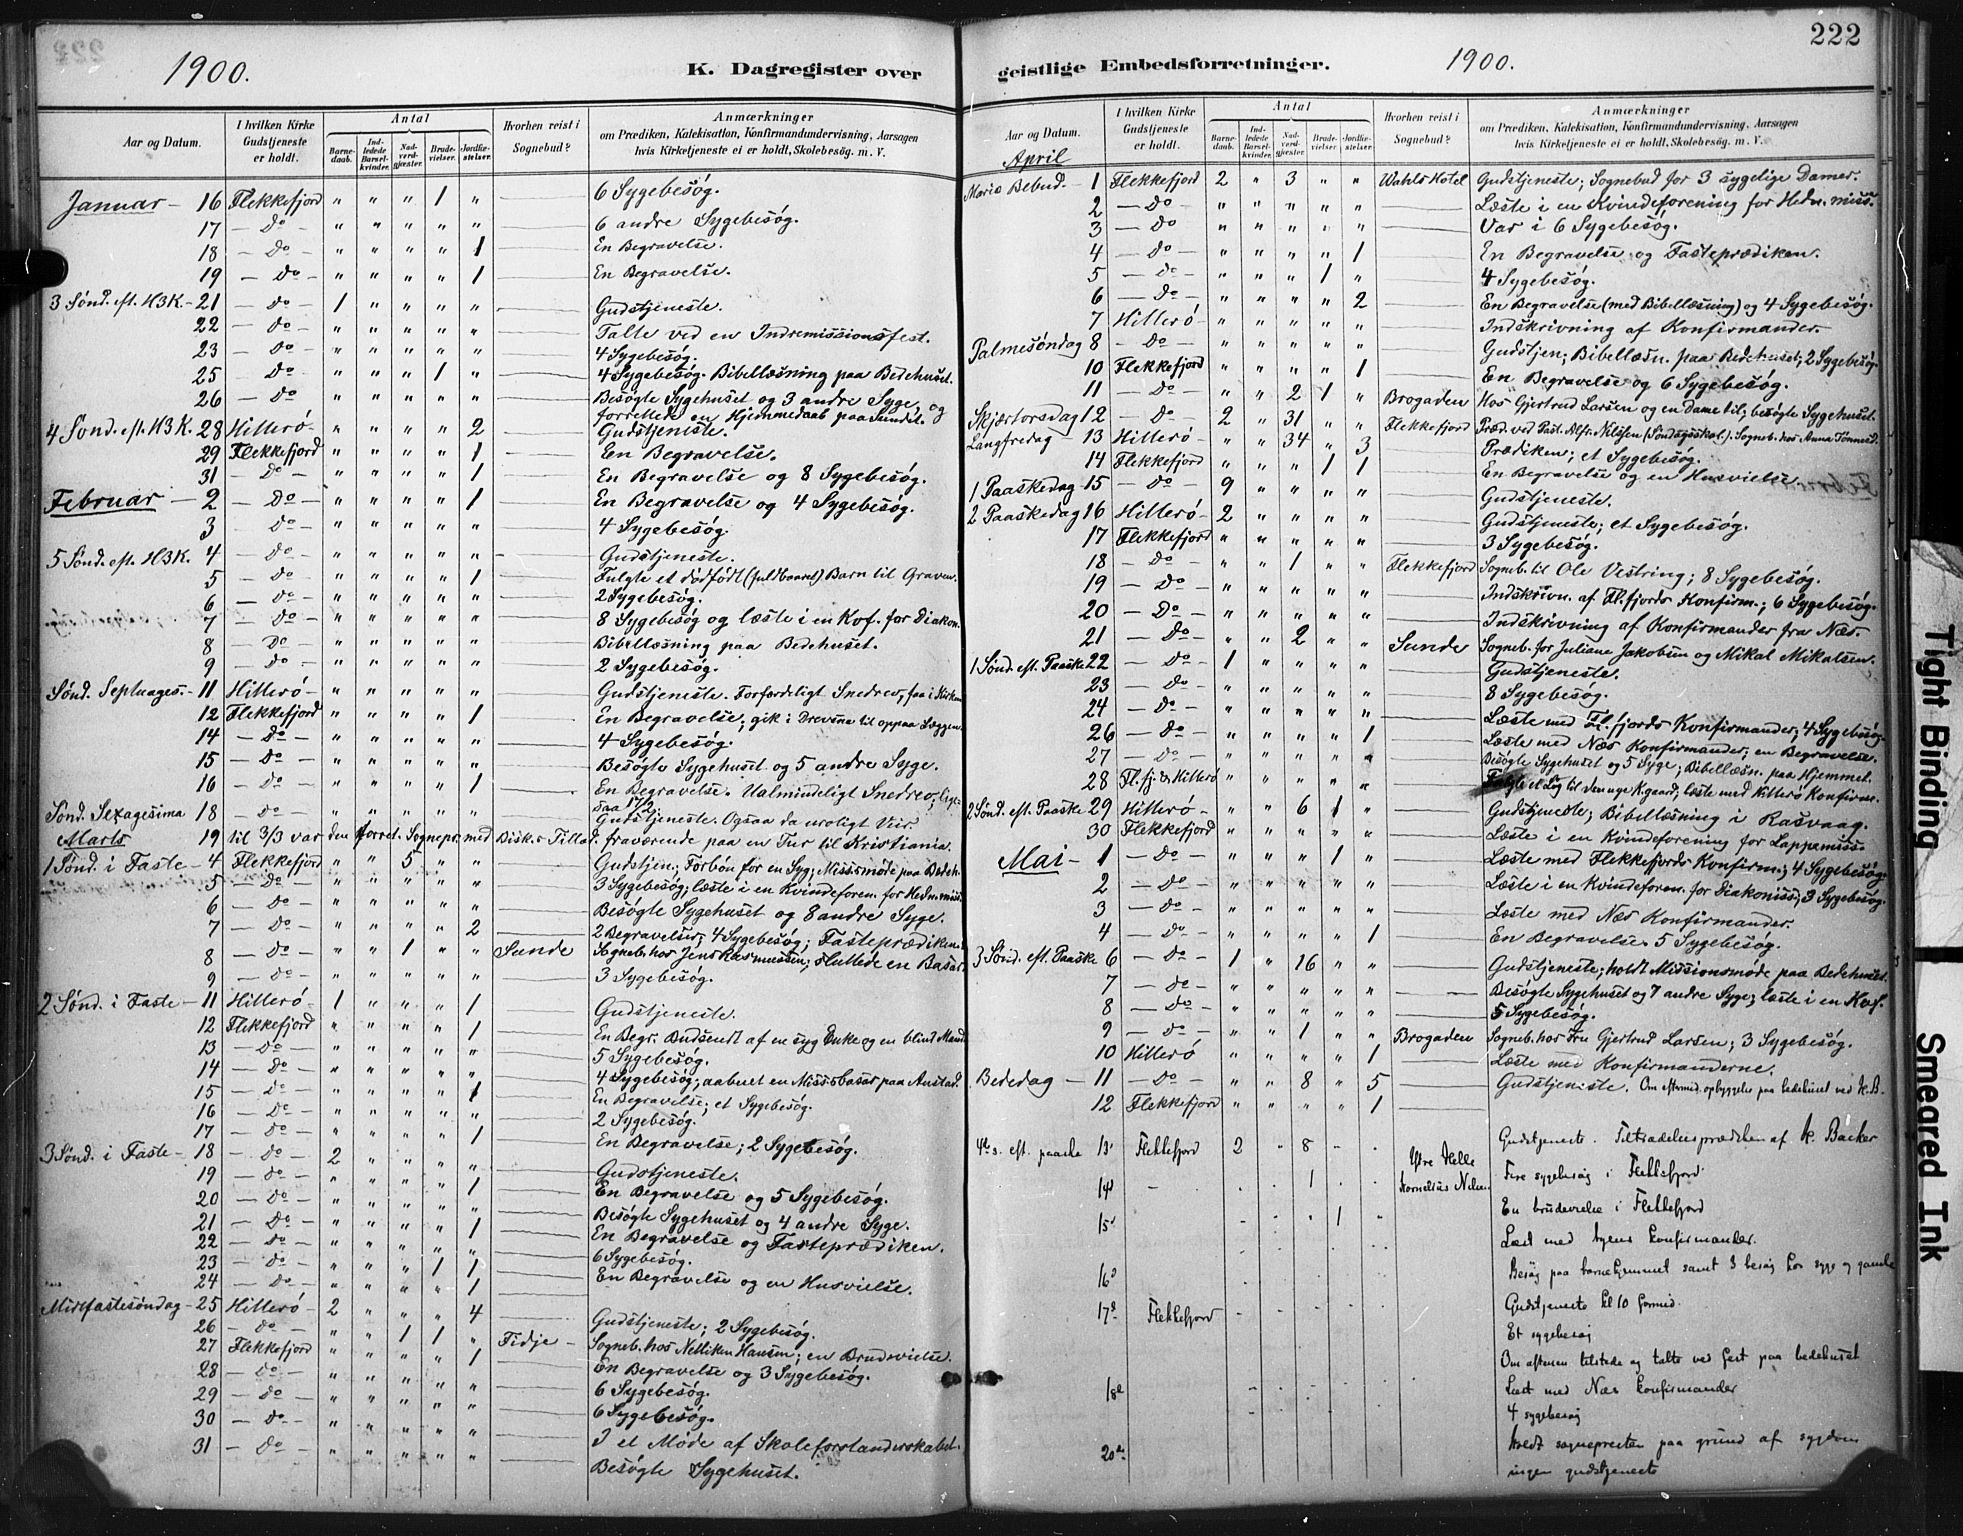 1900.
K. Dagregister over
Aar og Datum.
I hvilken Kirke Gudstjeneste er holdt.
Antal
Barne-daab.
Ind-ledede Barsel-kvinder.
Nad-verd-gjæster.
Brude-vielser.
Jordfæ-stelser.
Hvorhen reist i Sognebud?
Anmærkninger
om Prædiken, Katekisation, Konfirmandundervisning, Aarsagen
hvis Kirketjeneste ei er holdt, Skolebesøg. m. V.
Januar – 16 Flekkefjord " " " 1 " 6 Sygebesøg.
17 – Do – " " " " " 6 andre Sygebesøg.
18 – Do – " " " " 1 En Begravelse.
19 – Do – " " " " 1 En Begravelse.
3 Sønd. eft. H3K – 21 – Do – 1 " " " " Gudstjeneste.
22 – Do – " " " " " Talte ved en Indremissionsfest.
23 – Do – " " " " " 4 Sygebesøg.
25 Do – " " " 1 " 4 Sygebesøg. Bibellæsning paa Bedehuset.
26 – Do " " " " " Besøgte Sygehuset og 3 andre Syge, og
forrettede en Hjemmedaab paa Sundet.
4 Sønd. eft. H3K. 28 Hitterø – " " " " 2 Gudstjeneste.
29 Flekkefjord " " " " 1 En Begravelse.
31 – Do – " " " " 1 En Begravelse og 8 Sygebesøg.
Februar – 2 – Do – " " " " 1 En Begravelse og 4 Sygebesøg.
3 – Do – " " " " " 4 Sygebesøg.
5 Sønd. eft. H3K. 4 – Do – " " " " " Gudstjeneste.
5 – Do " " " " 1 Fulgte et dødfødt (fuldbaaret) Barn til Graven.
6 – Do – " " " " " 2 Sygebesøg.
7 – Do – " " " " " 8 Sygebesøg og læste i en Kvf. for Diakon.
8 Do " " " " " Bibellæsning paa Bedehuset.
9 – Do – " " " " " 2 Sygebesøg.
Sønd. Septuages – 11 Hitterø – " " " " " Gudstjeneste. Forfærdeligt Snedrev, faa i Kirken
12 Flekkefjord " " " " 1 En Begravelse; gik i Drevsne til oppaa Læggen.
14 – Do – " " " " " 4 Sygebesøg.
15 – Do – " " " " " Besøgte Sygehuset og 5 andre Syge.
16 – Do – " " " " 1 En Begravelse. Ualmindeligt Snedrev; lige-
saa 17/2.
Sønd. Sexagesima 18 – Do – Gudstjeneste. Ogsaa da uroligt Veir.
Marts 19 til 3/3 var den forret. Sognepr. med Bisk.s Tillad. fraværende paa en Tur til Kristiania.
1 Sønd. i Faste – 4 Flekkefjord " " 5 " " Gudstjen; Forbøn for en Syg; Missionsmøde paa Bedeh.
5 – Do – " " " " " 3 Sygebesøg; læste i en Kvindeforen. for Hedn. miss.
6 – Do – " " " " " Besøgte Sygehuset og 8 andre Syge.
7 – Do – " " " " 2 2 Begravelser; 4 Sygebesøg; Fasteprædiken.
8 – Do – " " 1 " " Sunde Sogneb. hos Jens Rasmussen; sluttede en Basar
9 – Do – " " " " " 3 Sygebesøg.
2 Sønd. i Faste – 11 Hitterø – 1 " " " 1 Gudstjeneste.
12 Flekkefjord " " " " 1 En Begr. Budsendt af en syg Enke og en blind Mand
13 – Do – " " " " " 5 Sygebesøg.
14 – Do – " " " " " 4 Sygebesøg; aabnet en Miss.basar paa Austad.
15 – Do – " " " " 1 En Begravelse; et Sygebesøg.
16 – Do – " " " " " 2 Sygebesøg.
17 – Do – " " " " 1 En Begravelse; 2 Sygebesøg.
3 Sønd. i Faste – 18 – Do – 2 " " " " Gudstjeneste.
19 – Do – " " " " 1 En Begravelse og 5 Sygebesøg.
20 – Do – " " " " " Besøgte Sygehuset og 4 andre Syge.
21 – Do – " " " " 1 En Begravelse og Fasteprædiken.
22 – Do – " " " " " 6 Sygebesøg.
23 – Do – " " " 1 1 En Begravelse og en Husvielse.
24 – Do – " " " " 1
Midtfastesøndag – 25 Hitterø – 2 " " " 4 Gudstjeneste; 2 Sygebesøg.
26 – Do – " " 1 1 " Fidje – Sogneb. hos Nelliken Hansen; en Brudevielse.
27 Flekkefjord " " " " 1 En Begravelse og 3 Sygebesøg.
28 – Do – " " " " " 6 Sygebesøg.
29 – Do – " " " " " 6 Sygebesøg.
30 – Do – " " " " " I et Møde af Skoleforstanderskabet.
31 – Do – " " " " " Besøgte Sygehuset.
222
geistlige Embedsforretninger.
1900.
Aar og Datum.
I hvilken Kirke Gudstjeneste er holdt.
Antal
Barne-daab.
Ind-ledede Barsel-kvinder.
Nad-verd-gjæster.
Brude-vielser.
Jordfæ-stelser.
Hvorhen reist i Sognebud?
Anmærkninger
om Prædiken, Katekisation, Konfirmandundervisning, Aarsagen
hvis Kirketjeneste ei er holdt, Skolebesøg. m. V.
April
Mariæ Bebud. – 1 Flekkefjord 2 " 3 " " Wahls Hotel Gudstjeneste; Sognebud for 3 sygelige Damer.
2 – Do – " " " " " Læste i en Kvindeforening for Hedn. miss.
3 – Do " " " " " Var i 6 Sygebesøg.
4 – Do – " " " " 1 En Begravelse og Fasteprædiken.
5 – Do – " " " 1 " 4 Sygebesøg.
6 – Do – " " " " 2 En Begravelse (med Bibellæsning) og 4 Sygebesøg.
7 Hitterø – " " " " " Indskrivning af Konfirmander.
Palmesøndag 8 – Do – " " " " " Gudstjen; Bibellæsn. paa Bedehuset; 2 Sygebesøg.
10 Flekkefjord " " " " 1 En Begravelse og 6 Sygebesøg.
11 – Do – " " 2 1 " Brogaden Hos Gjertrud Larsen og en Dame til; besøgte Sygehuset.
Skjærtorsdag 12 – Do – 2 " 31 " " Flekkefjord Præd. ved Past. Alfr. Nilssen (Søndagsskol.). Sogneb. hos Anna Tønnesd.
Langfredag 13 Hitterø – " " 34 " 3 Prædiken; et Sygebesøg.
14 Flekkefjord " " " 1 1 En Begravelse og en Husvielse.
1 Paaskedag – 15 – Do – 9 " " " " Gudstjeneste.
2 Paaskedag 16 Hitterø – 2 " " " " Gudstjeneste; et Sygebesøg.
17 Flekkefjord " " " " " 3 Sygebesøg.
18 – Do – " " 1 " " Flekkefjord Sogneb. til Ole Vestring; 8 Sygebesøg.
19 – Do – " " " " " Indskrivn. af Fl.fjords Konfirm.; 6 Sygebesøg.
20 – Do – " " " " " Indskrivning af Konfirmander fra Næs.
21 – Do – " " 2 " " Sunde Sogneb. for Juliane Jakobsen og Mikal Mikalsen.
1 Sønd. eft. Paaske 22 – Do – 1 " " " " Gudstjeneste.
23 – Do – " " " " " 8 Sygebesøg.
24 – Do – " " " " " Læste med Fl.fjords Konfirmander; 4 Sygebesøg.
26 – Do – " " " " 1 Læste med Næs Konfirmander; en Begravelse.
27 – Do – " " " " " Besøgte Sygehuset og 5 Syge; Bibellæsn. paa Hjemmet.
28 Fl.fj. & Hitterø " " " " " Fulgte et Lig til den nye K.gaard; læste med Hitterø Konfirm.
2 Sønd. eft. Paaske 29 Hitterø – " " 6 1 " Gudstjeneste; Bibellæsning i Rasvaag.
30 Flekkefjord " " " " " Læste i en Kvindeforening for Lappamiss.
Mai – 1 – Do – " " " 1 " Læste med Flekkefjords Konfirm.; 4 Sygebesøg.
2 – Do – " " " " " Læste i en Kvindeforen. for Diakoniss; 3 Sygebesøg.
3 – Do – " " " " " Læste med Næs Konfirmander.
4 – Do – " " " " 1 En Begravelse. 5 Sygebesøg.
3 Sønd. eft. Paaske 6 – Do – 1 " 16 " " Gudstjeneste; holdt Missionsmøde paa Bedehuset.
7 – Do – " " " " " Besøgte Sygehuset og 7 andre Syge; læste i en Kvf.
8 – Do – " " " " " 5 Sygebesøg.
9 – Do " " 1 " " Brogaden Sogneb. hos Fru Gjertrud Larsen; 3 Sygebesøg.
10 Hitterø " " " " 1 Læste med Konfirmanderne.
Bededag – 11 – Do – " " 8 " 5 Gudstjeneste. Om eftermid. opbyggelse paa bedehuset ved K.B.
12 Flekkefjord " " " " 1
4de s. eft. paaske 13 Flekkefjord 2 " 8 - . Gudstjeneste. Tiltrædelsesprædiken af K. Barker
14 – . . 1 . . Ytre Helle Kornelius Nilsen Fire sygebesøg i Flekkefjord
15 . . " 1 . En brudevielse i Flekkefjord
Læst med byens konfirmander.
16d Besøg paa barnehjemmet samt 3 besøg hos syge og gamle
17d Flekkefjord - - - - - Gudstjeneste kl 10 formid.
Et sygebesøg
Om aftenen tilstede og talte ved fest paa bedehuset
18d Læst med Næs konfirmander
4 sygebesøg
20de Holdt sognepresten paa grund af sygdom
ingen gudstjeneste
Tight Binding
Smeared Ink